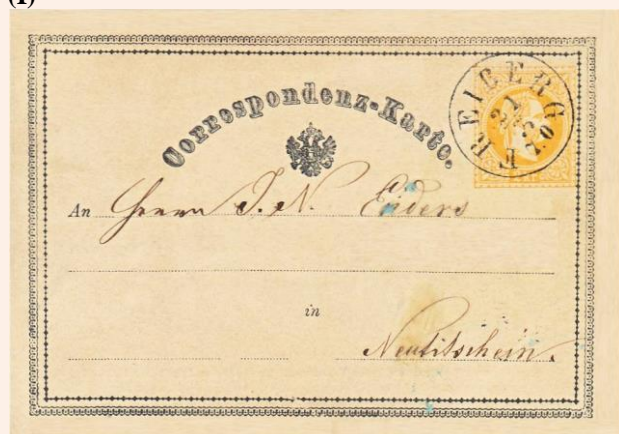 (I)
Correspondenz-Karte.
FREIBERG
21
5
70
An Herrn J. N. Enders
in
Neutitschein.